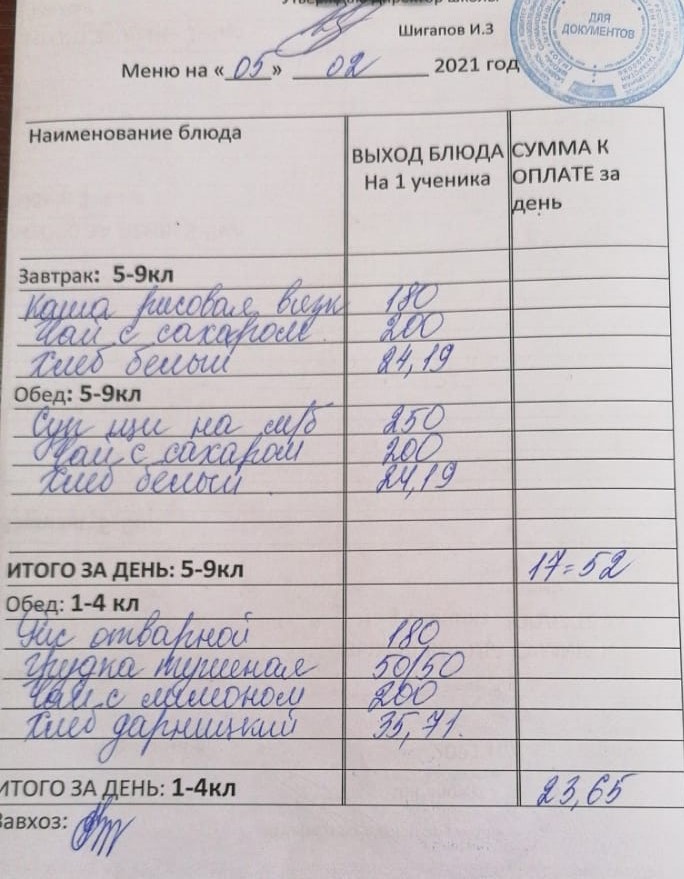 Утверждаю директор школы
Шигапов И.З
Меню на « 05 » 02 2021 год
ДЛЯ
ДОКУМЕНТОВ
Наименование блюда
ВЫХОД БЛЮДА
На 1 ученика
СУММА К
ОПЛАТЕ за
день
Завтрак: 5-9кл
Каша рисовая вязк 180
Чай с сахаром 200
Хлеб белый 24,19
Обед: 5-9кл
Суп щи на м/б 250
Чай с сахаром 200
Хлеб белый 24,19
ИТОГО ЗА ДЕНЬ: 5-9кл 17=52
Обед: 1-4 кл
Рис отварной 180
грудка тушеная 50/50
Чай с лимоном 200
Хлеб дарницкий 35,71.
ИТОГО ЗА ДЕНЬ: 1-4кл 23,65
Завхоз: